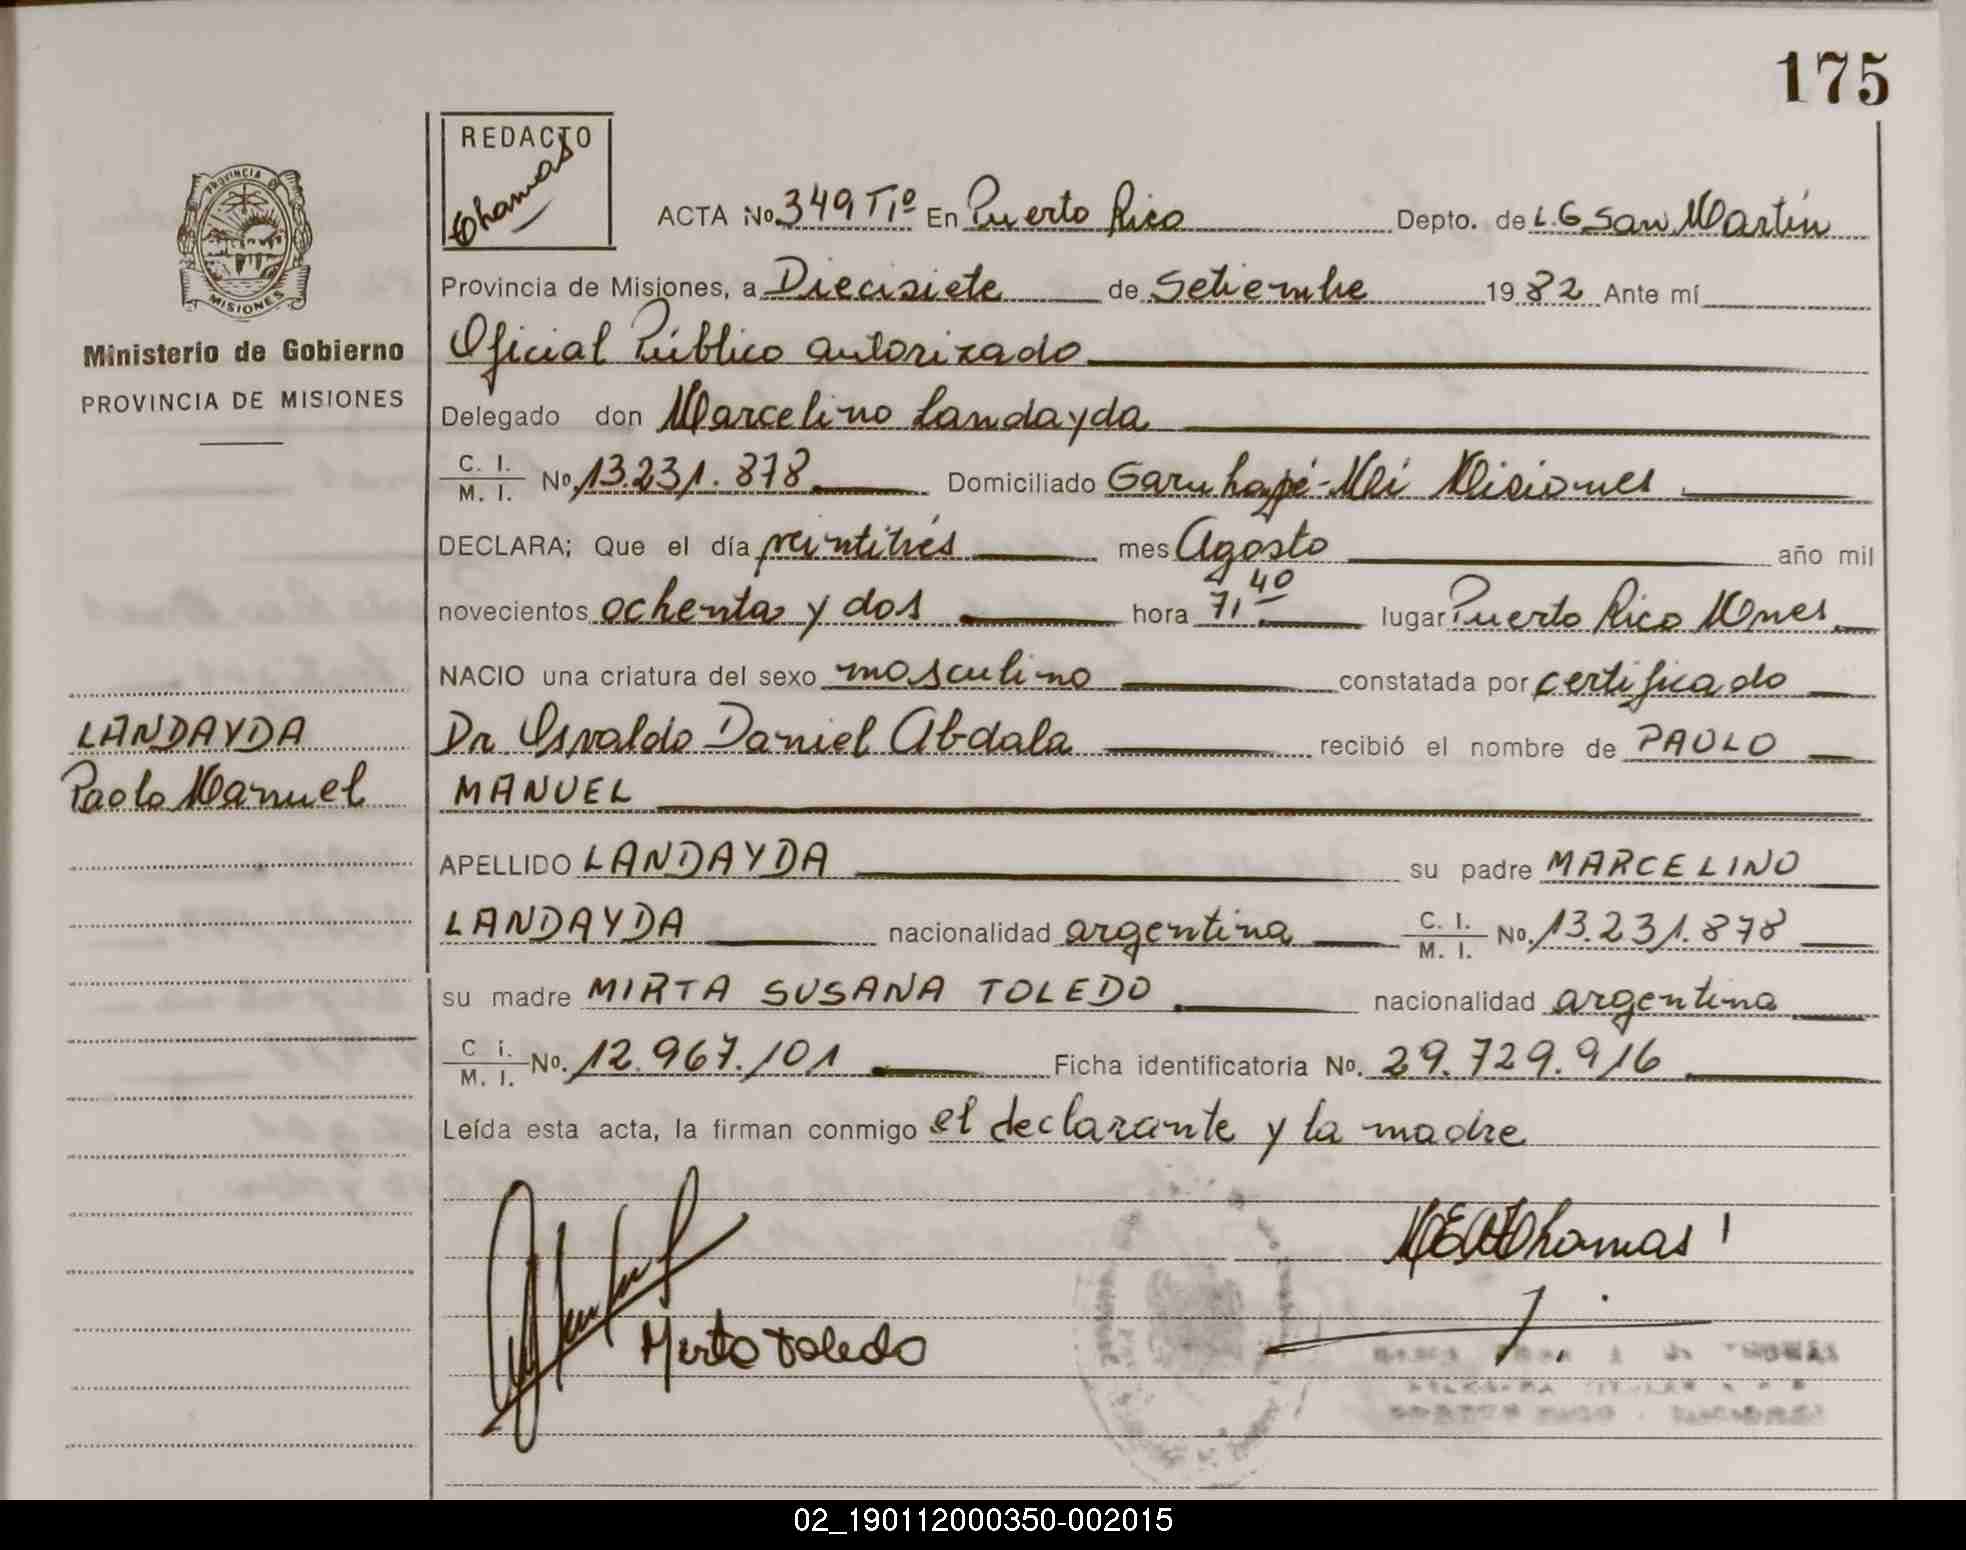 175
REDACTO
Thomas
PROVINCIA DE
MISIONES
Ministerio de Gobierno
PROVINCIA DE MISIONES
ACTA No. 349 T1º En Puerto Rico Depto. de L. G San Martín
Provincia de Misiones, a Diecisiete de Setiembre 1982 Ante mí
Oficial Público autorizado
Delegado don Marcelino Landayda
C. I. / M. I. No. 13.231.878 Domiciliado Garuhapé-Mí Misiones
DECLARA; Que el día veintitrés mes Agosto año mil
novecientos ochenta y dos hora 7,40 lugar Puerto Rico Mnes
NACIO una criatura del sexo masculino constatada por certificado
Dr. Osvaldo Daniel Abdala recibió el nombre de PAOLO
MANUEL
LANDAYDA
Paolo Manuel
APELLIDO LANDAYDA su padre MARCELINO
LANDAYDA nacionalidad argentina C. I. / M. I. No. 13.231.878
su madre MIRTA SUSANA TOLEDO nacionalidad argentina
C i. / M. I. No. 12.967.101 Ficha identificatoria No. 29.729.916
Leída esta acta, la firman conmigo el declarante y la madre
Thomas
Mirta Toledo
02_190112000350-002015